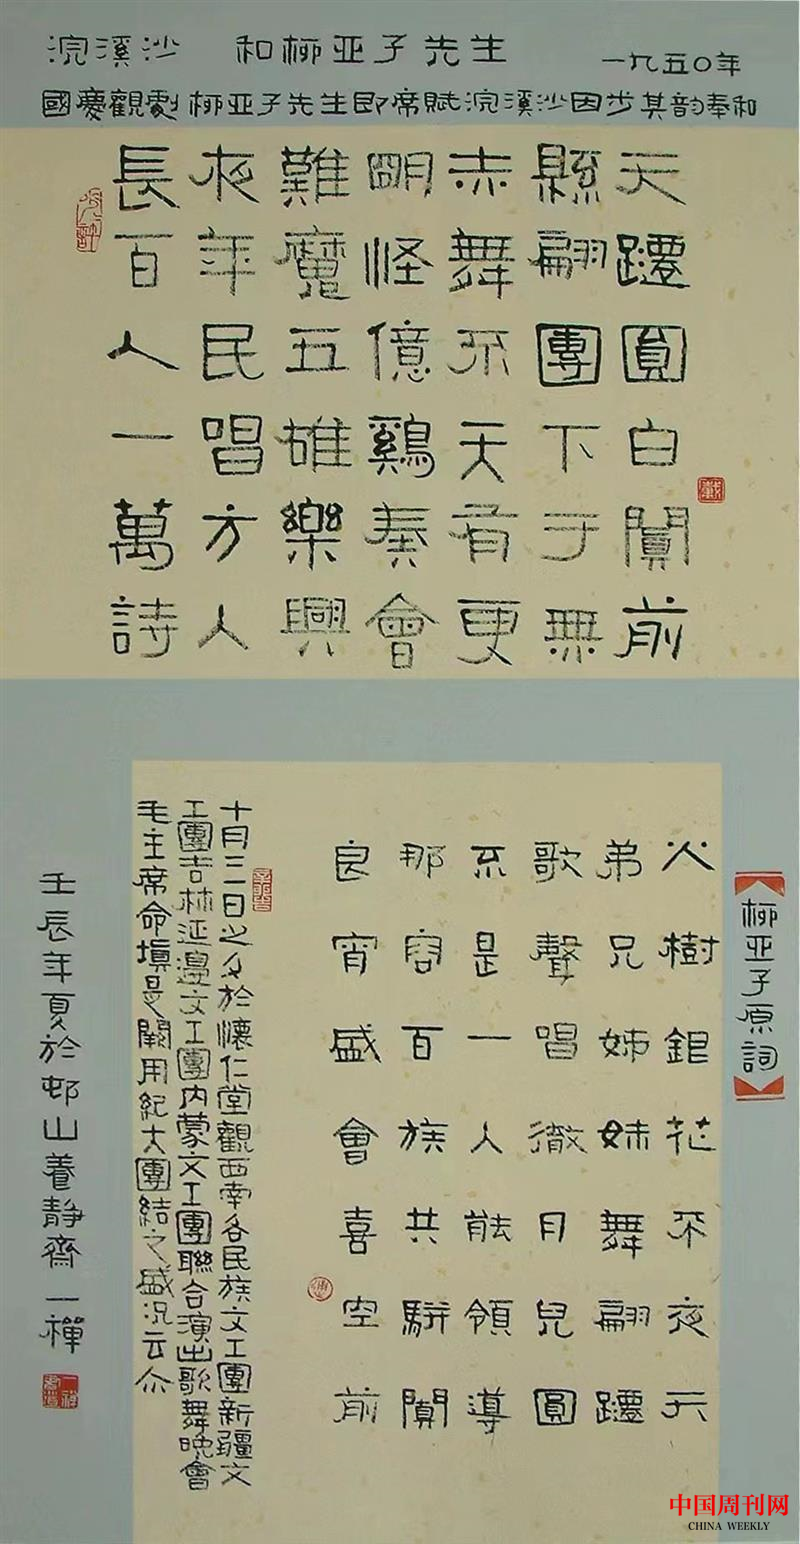 浣溪沙 和柳亚子先生
一九五〇年
國慶觀劇 柳亚子先生即席賦浣溪沙因步其韵奉和
長夜難明赤縣天
百年魔怪舞翩躚
人民五億不團圓
一唱雄鷄天下白
萬方樂奏有于闐
詩人興會更無前
【柳亚子原詞】
火樹銀花不夜天
弟兄姊妹舞翩躚
歌聲唱徹月兒圓
不是一人能領導
那容百族共駢闐
良宵盛會喜空前
十月三日之夕於懷仁堂觀西南各民族文工團新疆文
工團吉林延邊文工團内蒙文工團聯合演出歌舞晚會
毛主席命填是闋用紀大團結之盛況云尒
壬辰年夏於邨山養静齋一禪
中国周刊网
CHINA WEEKLY